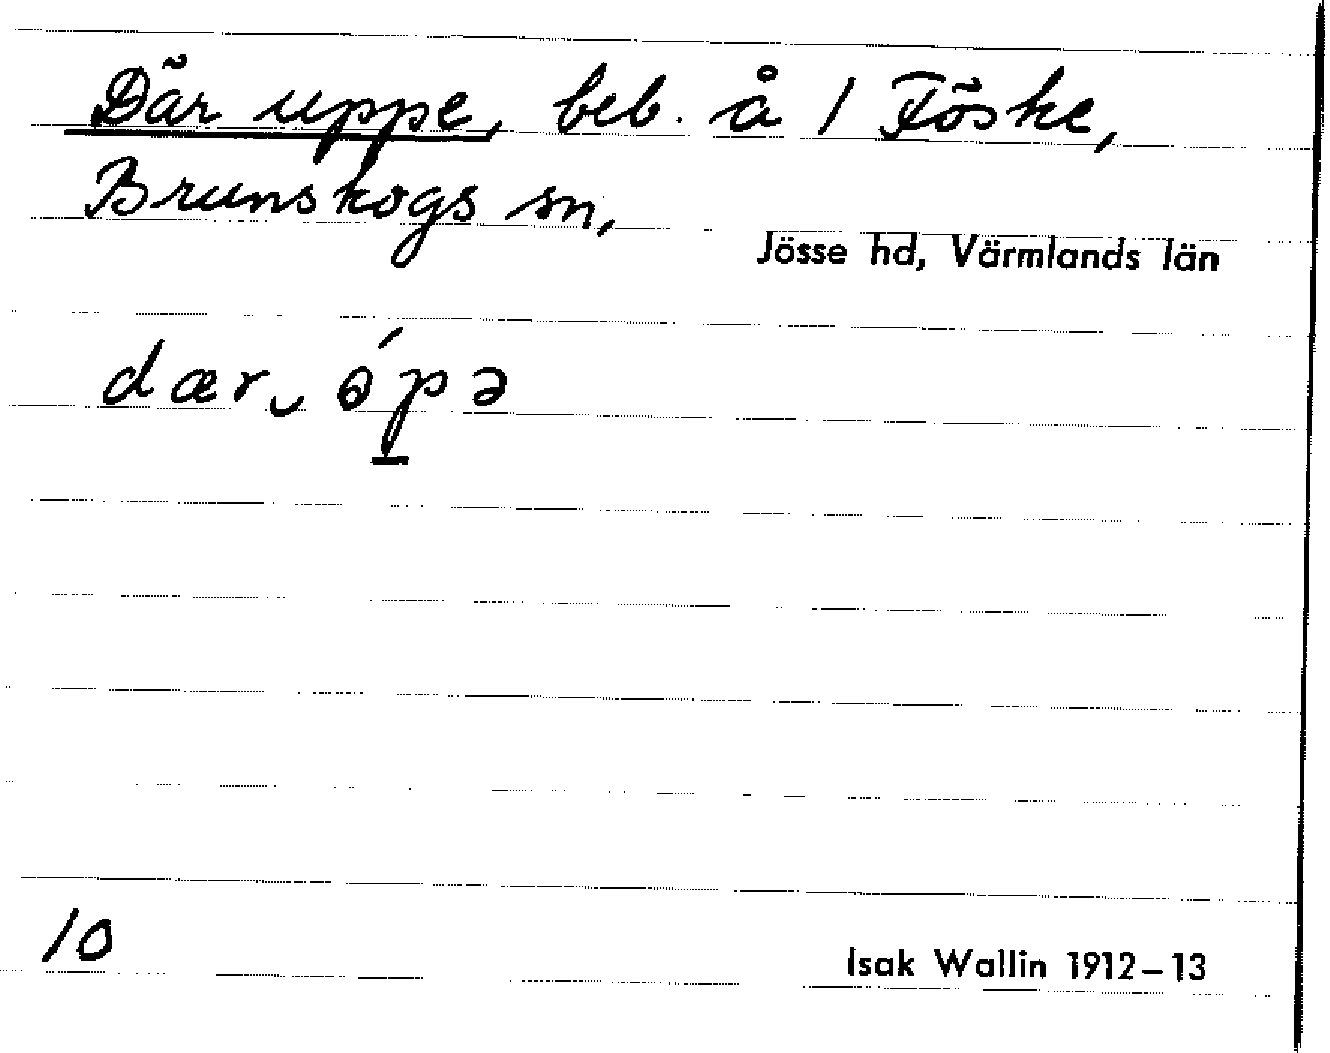 Där uppe, beb. å 1 Föske,
Brunskogs sn,
Jösse hd, Värmlands län
dær‿ópə
10
Isak Wallin 1912–13